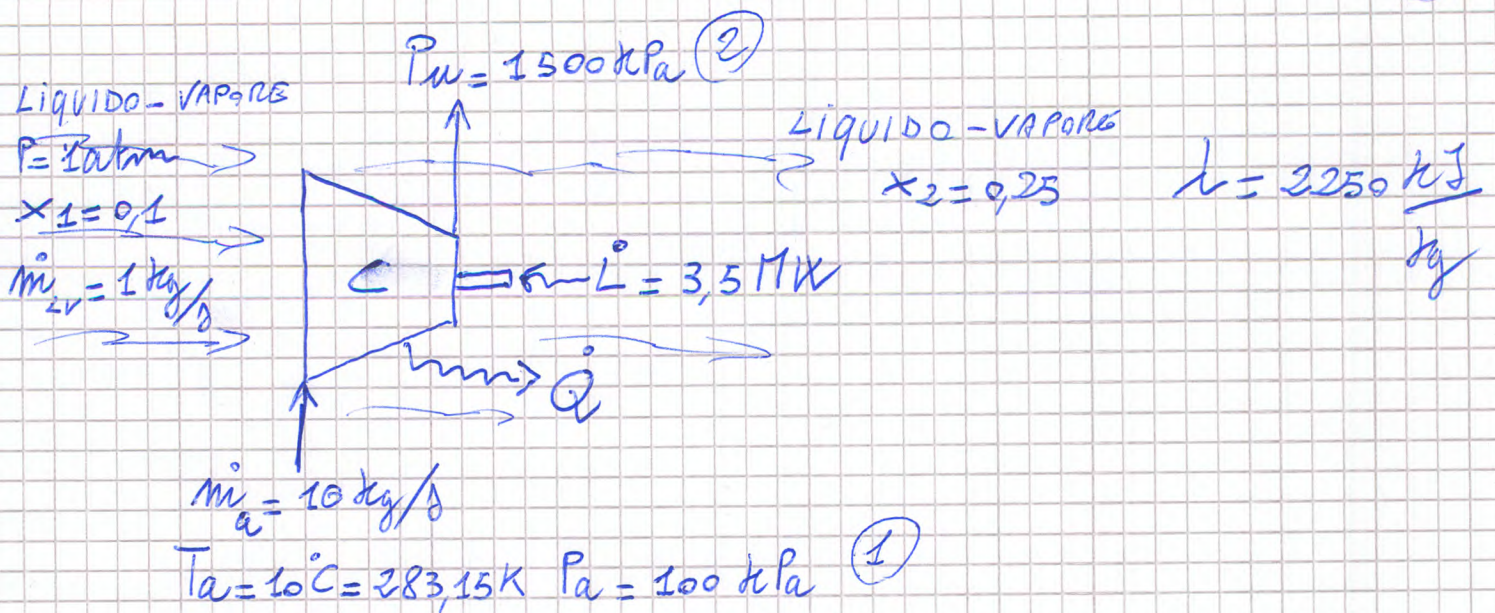 Pu = 1500 kPa ②
LIQUIDO-VAPORE
P = 1 atm
x1 = 0,1
ṁLV = 1 kg/s
LIQUIDO-VAPORE
x2 = 0,25
λ = 2250 kJ/kg
C
L̇ = 3,5 MW
Q̇
ṁa = 10 kg/s
Ta = 10°C = 283,15K Pa = 100 kPa ①